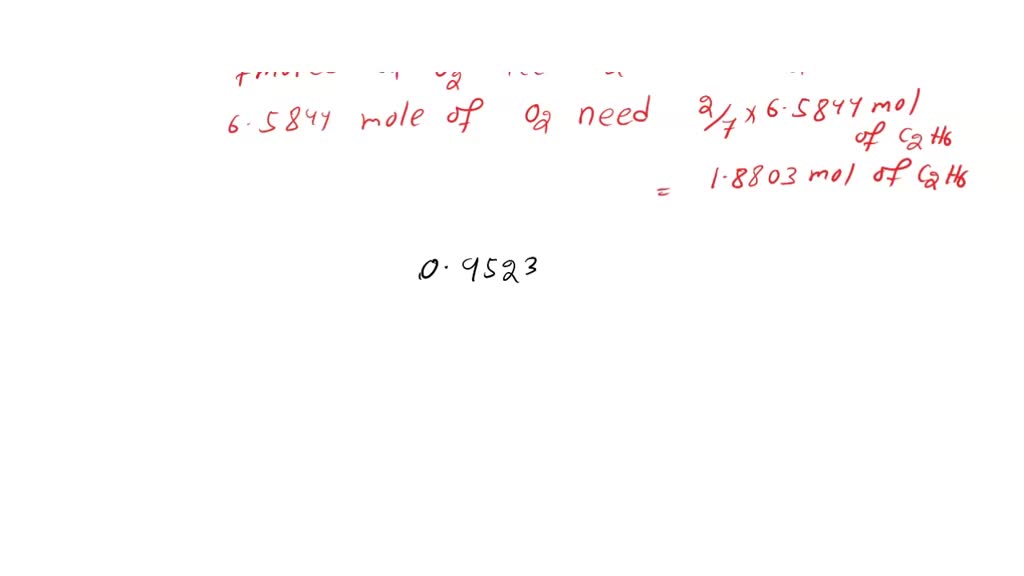 6.5844 mole of O2 need 2/7 x 6.5844 mol
of C2H6
= 1.8803 mol of C2H6
0.9523